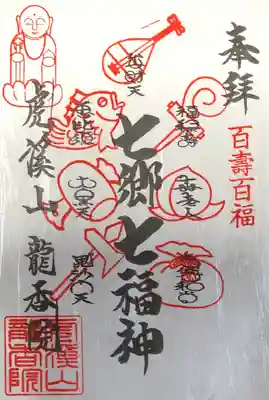 奉拝
百壽百福
七郷七福神
福禄寿
寿老人
布袋和尚
弁財天
恵比須
大黒天
毘沙門天
虎溪山 龍香院
虎溪山
龍香院